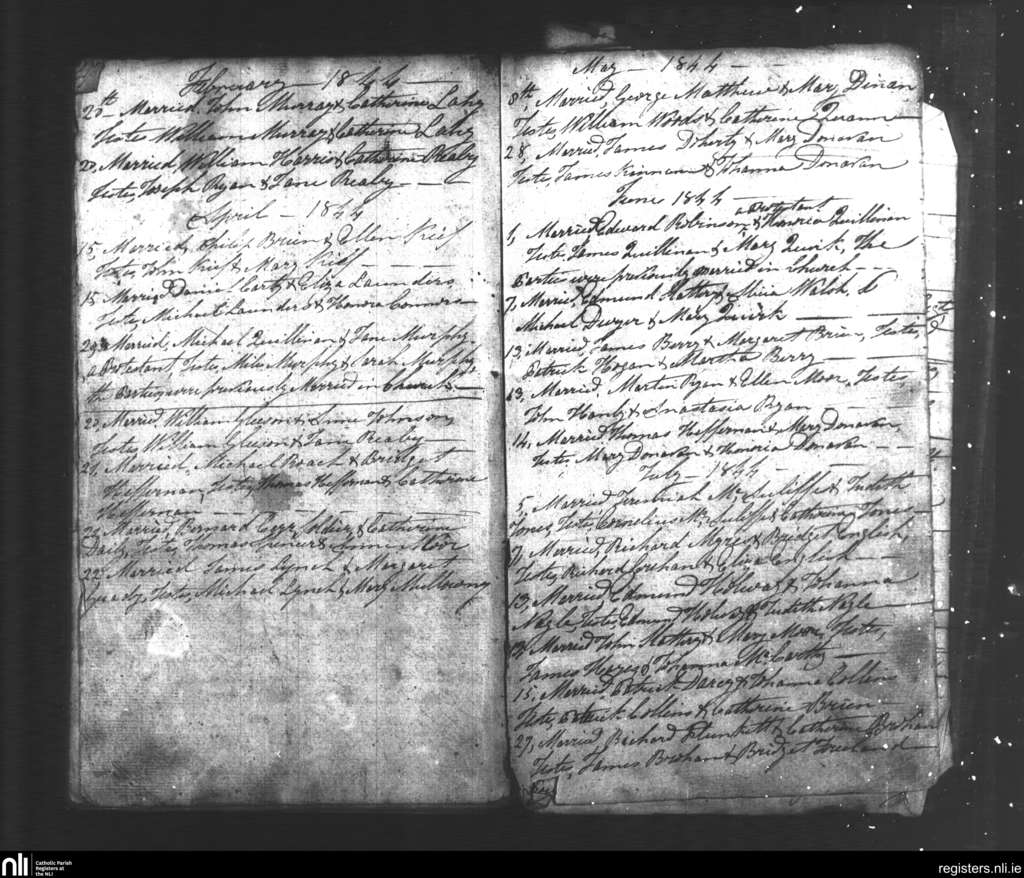 February - 1844 -
Married, John Murray & Catherine Lahy
Testes William Murray & Catherine Lahy
20, Married William Harris & Catherine Prealy
Testes, Joseph Ryan & Jane Prealy
April - 1844
15, Married, Philip Brien & Ellen Kief
Testes, John Kief & Mary Kief
15 Married Daniel Carty & Eliza Launders
Testes, Michael Launders & Honora Connors
Married, Michael Quillinan & Jane Murphy
a Protestant, Testes, Miles Murphy & Sarah Murphy
the Parties were previously Married in Church
Married William Gleeson & Anne Johnson
Testes, William Gleeson & Jane Prealy
21, Married, Michael Roach & Bridget
Heffernan, Testes, Thomas Heffernan & Catherine
Heffernan
22, Married, Bernard Soldier, & Catherine
Daily, Testes, Thomas & Anne Moor
22, Married James Lynch & Margaret
Testes, Michael Lynch & Mary Mullowny
May - 1844 -
8th, Married, George Matthew & Mary Dinan
Testes, William Woods & Catherine
28, Married, James Doherty & Mary Donovan
Testes, James Kinnane & Johanna Donovan
June 1844
a Protestant
1, Married, Edward Robinson & Honora Quillinan
Testes, James Quillinan & Mary Quirk, The
Parties were previously married in Church
7, Married, Edmund Slattery & Alicia Walsh, Ts
Michael Dwyer & Mary Quirk
13, Married, James Berry & Margaret Brien, Testes,
Patrick Hogan & Martha Berry
13, Married, Martin Ryan & Ellen Moor, Testes
John Hanly & Anastasia Ryan
14, Married, Thomas Heffernan & Mary Donovan,
Testes, Mary Donovan & Honoria Donovan
July - 1844
5, Married, Jeremiah Mc Auliffe & Judith
Jones, Testes, Cornelius Mc Auliffe & Catherine Jones
7, Married, Richard Myres & Bridget English,
Testes, Richard & Eliza English
13, Married Edmund Holway & Johanna
Nagle Testes, Edmund Holway & Judith Nagle
Married John Slattery & Mary Moor, Testes,
James Hayes & Johanna Mc Carthy
15, Married Patrick Darcy & Johanna Collins
Testes, Patrick Collins & Catherine Brien
27, Married, Richard Plunkett & Catherine Brohan
Testes, James Brohan & Bridget Ireland
nli
Catholic Parish
Registers at
the NLI
registers.nli.ie